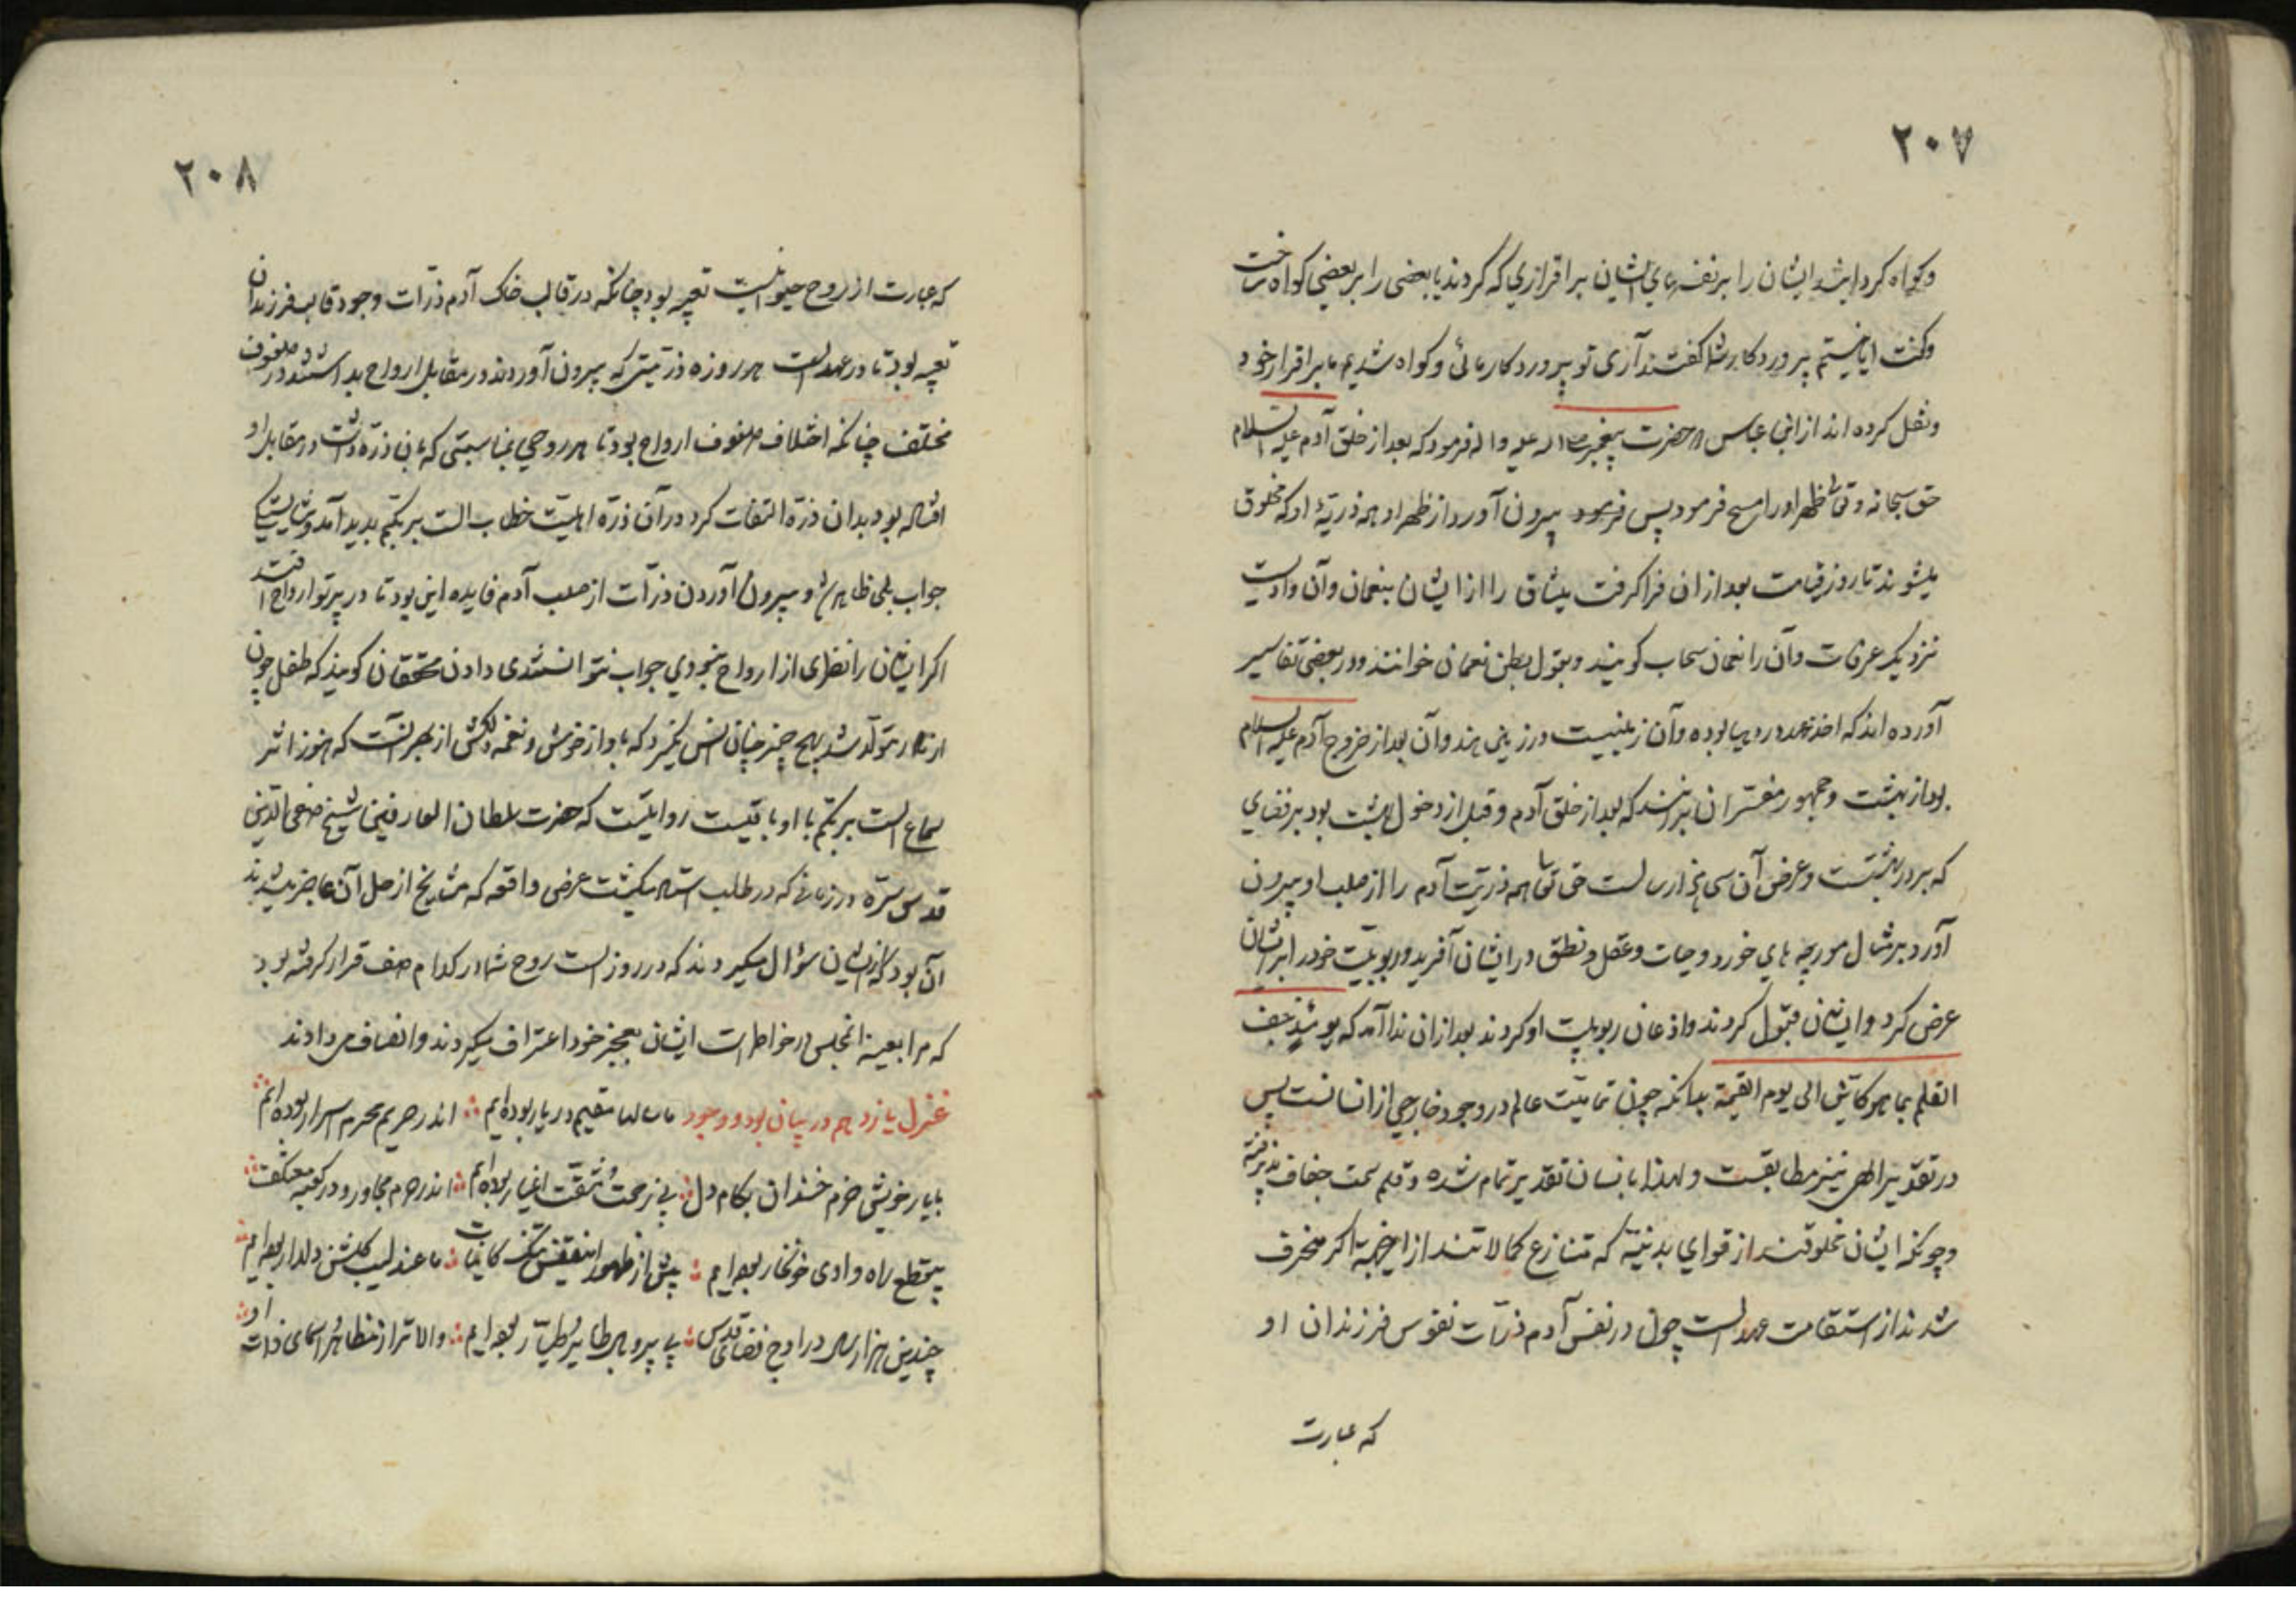 ٢٠٧
وکواه کردایشد ایشان را بر نفسهای ایشان بر اقراری که کردند یا بعضی را بر بعضی کواه ساخت
وکفت ایا نیستم پروردکار شما کفتند آری تو پروردکار مائی وکواه شدیم ما بر اقرار خود
ونقل کرده اند از ابن عباس حضرت پیغمبر علیه واله فرمود که بعد از خلق آدم علیه السلام
حق سبحانه وتعالی ظهر اورا مسح فرمود پس بیرون آورد از ظهر او همه ذریّهٔ او که مخلوق
میشوند تا روز قیامت بعد از ان فرا کرفت میثاق را از ایشان بنعمان وآن وادیست
نزدیک عرفات وآن را نعمان سحاب کویند وبقول بطن نعمان خوانند ودر بعضی تفاسیر
آورده اند که اخذ عهد در دهیا بوده وآن زمینیست در زمین هند وآن بعد از خروج آدم علیه السلام
بود از بهشت وجمهور مفسّران برانند که بعد از خلق آدم وقبل از دخول بهشت بود بر فضای
که بر در بهشتست وعرض آن سی هزار ساله است حق تعالی همه ذریّت آدم را از صلب او بیرون
آورد بر مثال مورچه های خورد وحیات وعقل ونطق در ایشان آفرید وربوبیّت خود را بر ایشان
عرض کرد وایشان قبول کردند واذعان ربوبیت او کردند بعد از ان ندا آمد که جف
القلم بما هو کائن الی یوم القیمة بدانکه چون تمامیّت عالم در وجود خارجی از انسانست پس
در تقدیر الهی نیز مطابقست ولهذا بانسان تقدیر تمام شده وقلم سمت جفاف پذیرفته
وچونکه ایشان مخلوقند از قوای بدنیّه که متنازع کمالاتند از اینجهة اکر منحرف
شدند از استقامت عهد الست چون در نفس آدم ذرّات نفوس فرزندان او
که عبارت
٢٠٨
که عبارت از روح حیوانیست تعبیه بود چنانکه در قالب خاک آدم ذرّات وجود قالب فرزندان
تعبیه بود تا در عهد الست هر روزه ذریّتی که بیرون آوردند در مقابل ارواح بداشتند در صفوف
مختلف چنانکه اختلاف صفوف ارواح بود تا هر روحی بمناسبتی که بان ذرّه داشت در مقابل او
افتاده بود بدان ذرّه التفات کرد در آن ذرّه اهلیّت خطاب الست بربکم بدید آمد وشایستکی
جواب بلی ظاهر شد وبیرون آوردن ذرّات از صلب آدم فایده این بود تا در پرتو ارواح افتند
اکر ایشان را نظری از ارواح نبودی جواب نتوانستندی دادن محققان کویند که طفل چون
از مادر متولّد شد بهیچ چیز چنان انس نکیرد که باواز خوش ونغمه دلکش از بهر آنست که هنوز اثر
سماع الست بربکم با او باقیست روایتست که حضرت سلطان العارفین شیخ صفی الدّین
قدس سرّه در زمانی که در طلب میکشت عرض واقعه که مشایخ از حل آن عاجز میشدند
آن بود که از ایشان سؤال میکردند که در روز الست روح شما در کدام صف قرار کرفته بود
که مرا بعینه انمجلس در خاطر است ایشان بعجز خود اعتراف میکردند وانصاف می دادند
غزل یازدهم در بیان بود ووجود ما سالها مقیم در یار بوده ایم ؞ اندر حریم محرم اسرار بوده ایم ؞
با یار خویش خرم خندان بکام دل ؞ بی زحمت ومشقت اغیار بوده ایم ؞ اندر حرم مجاور ودر کعبه معتکف ؞
بیقطع راه وادی خونخوار بوده ایم ؞ پیش از ظهور این قفس تنک کاینات ؞ ما عندلیب کلشن دلدار بوده ایم ؞
چندین هزار سال در اوج فضای قدس ؞ بی پر وبال طایر طیّار بوده ایم ؞ والاتر از مظاهر اسمای ذات او ؞